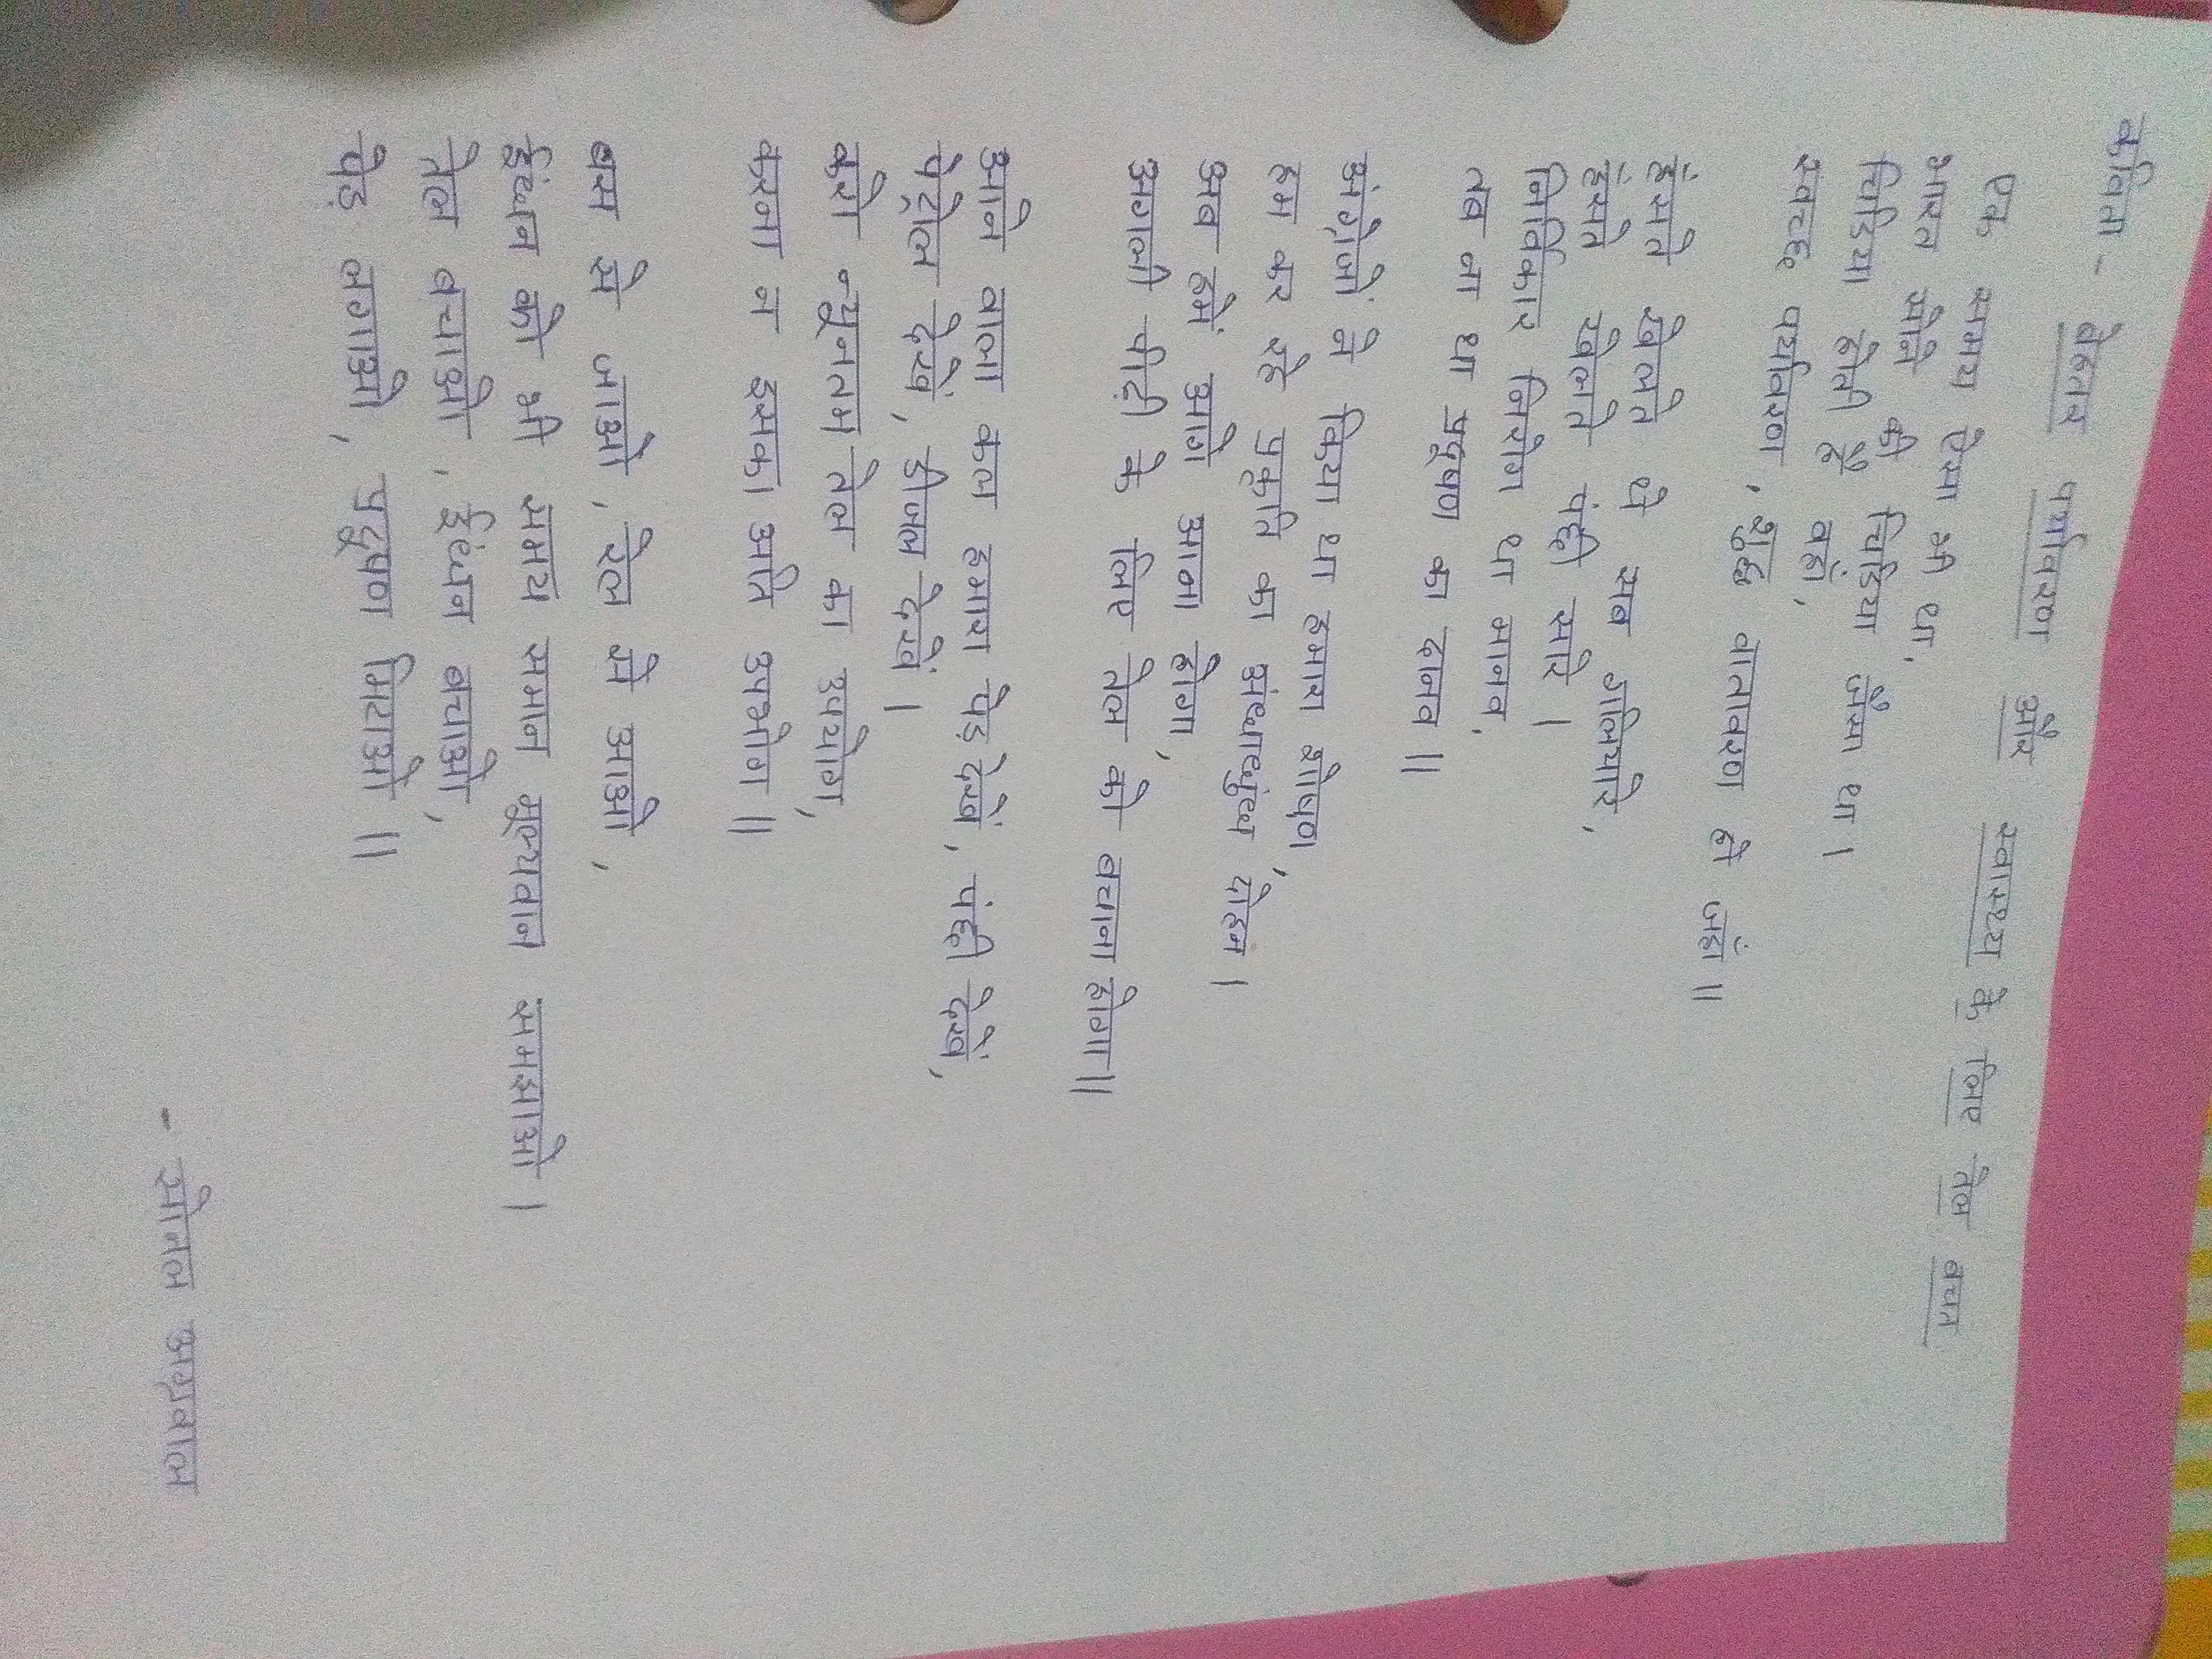 कविता - बेहतर पर्यावरण और स्वास्थ्य के लिए तेल बचत
एक समय ऐसा भी था,
भारत सोने की चिड़िया जैसा था।
चिड़िया होती है वहां,
स्वच्छ पर्यावरण, शुद्ध वातावरण हो जहां॥
हंसते खेलते थे सब गलियारे,
हंसते खेलते पंछी सारे।
निर्विकार निरोग था मानव,
तब ना था प्रदूषण का दानव॥
अंग्रेजों ने किया था हमारा शोषण,
हम कर रहे प्रकृति का अंधाधुंध दोहन।
अब हमें आगे आना होगा,
अगली पीढ़ी के लिए तेल को बचाना होगा॥
आने वाला कल हमारा पेड़ देखें, पंछी देखें,
पेट्रोल देखें, डीजल देखें।
करो न्यूनतम तेल का उपयोग,
करना न इसका अति उपभोग॥
बस से जाओ, रेल से आओ,
ईंधन को भी समय समान मूल्यवान समझाओ।
तेल बचाओ, ईंधन बचाओ,
पेड़ लगाओ, प्रदूषण मिटाओ॥
- सोनल अग्रवाल